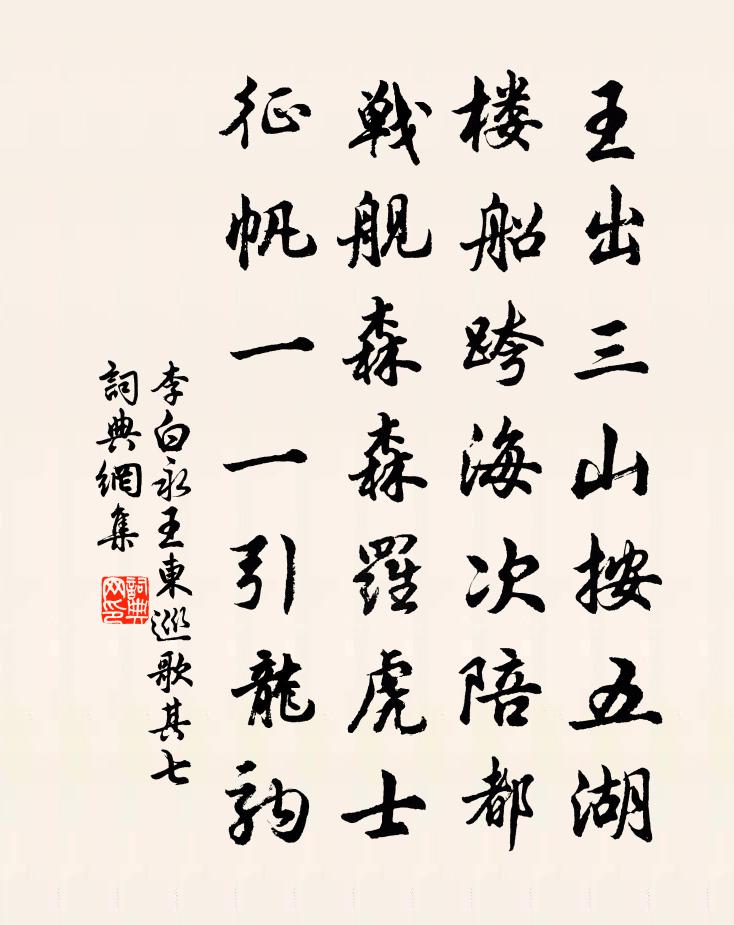 王出三山按五湖
楼船跨海次陪都
戦舰森森羅虎士
征帆一一引龍駒
李白永王東巡歌其七
詞典網集
詞典網印